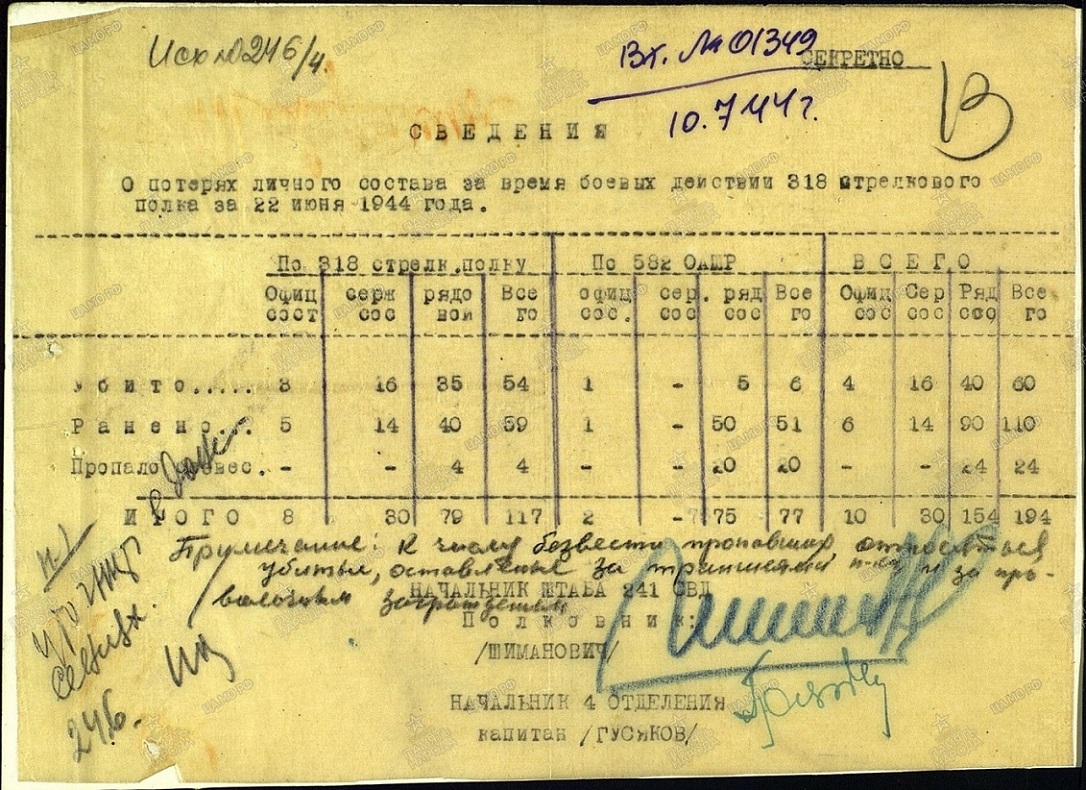 Исх №0246/4.
Вх. № 01349
СЕКРЕТНО
10.7 44 г.
В
СВЕДЕНИЯ
О потерях личного состава за время боевых действии 318 стрелкового
полка за 22 июня 1944 года.
По 318 стрелк.полку По 582 ОАШР ВСЕГО
Офиц серж рядо Все офиц сер. ряд Все Офиц Сер Ряд Все
сост сос вой го сос. сос сос го сос сос соо го
Убито..... 3 16 35 54 1 - 5 6 4 16 40 60
Ранено... 5 14 40 59 1 - 50 51 6 14 90 110
Пропало безвес. - - 4 4 - - 20 20 - - 24 24
ИТОГО 8 30 79 117 2 - 75 77 10 30 154 194
Примечание: к числу безвести пропавших, относиться
убитые, оставленые за траншеями и за про-
волочным заграждением
НАЧАЛЬНИК ШТАБА 241 СВД
Полковник:
/ШИМАНОВИЧ/
НАЧАЛЬНИК 4 ОТДЕЛЕНИЯ
капитан /ГУСЯКОВ/
246.
ЦАМО.РФ